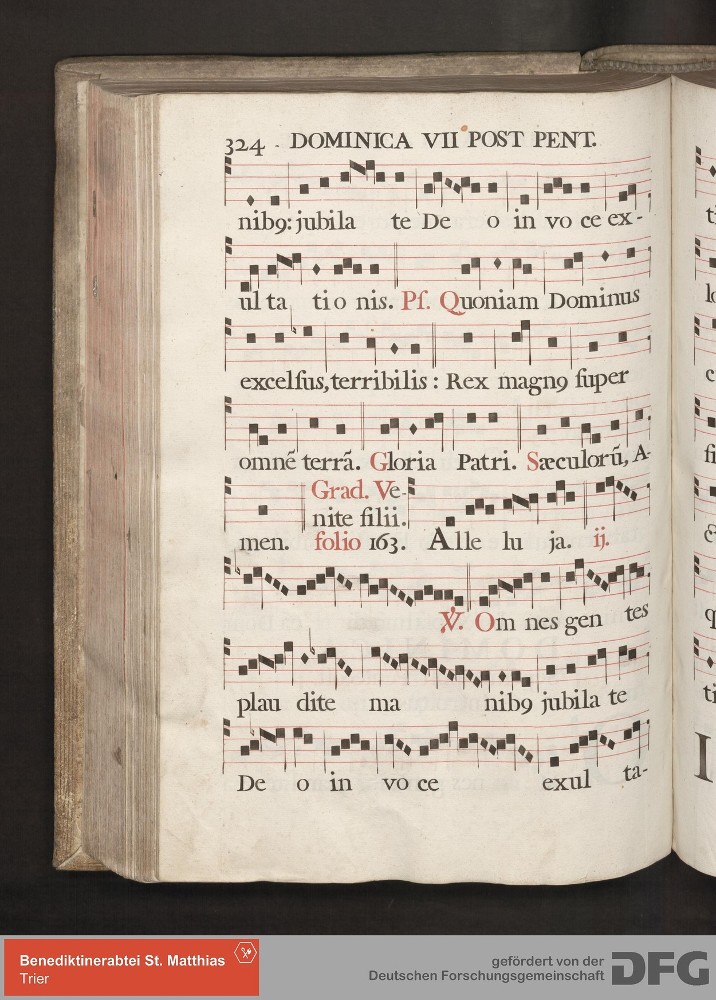 324 · DOMINICA VII POST PENT.
nibꝰ: jubila te De o in vo ce ex-
ul ta ti o nis. Ps. Quoniam Dominus
excelsus, terribilis : Rex magnꝰ super
omnē terrā. Gloria Patri. Sæculorū, A-
men. Grad. Ve-
nite filii.
folio 163. Alle lu ja. ij.
℣. Om nes gen tes
plau dite ma nibꝰ jubila te
De o in vo ce exul ta-
Benediktinerabtei St. Matthias
Trier
gefördert von der
Deutschen Forschungsgemeinschaft DFG